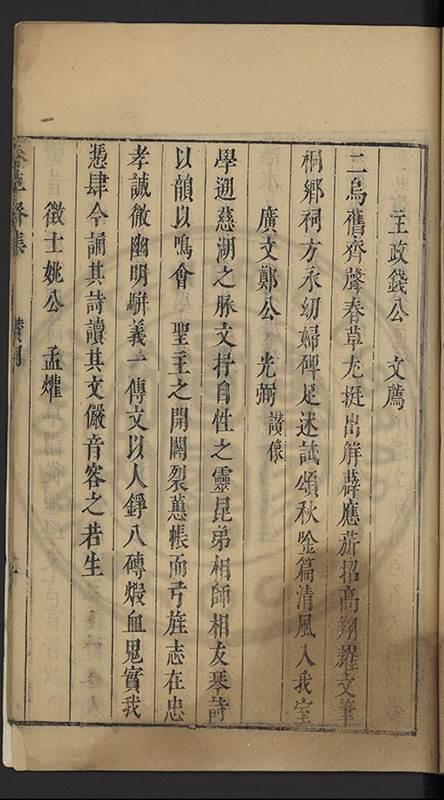 主政錢公　文薦
二烏舊齊聲春草尤挺出解薜應薪招高翔耀文筆
桐鄉祠方永幼婦碑足述試頌秋鑒篇清風入我室
廣文鄭公　光弼　讃像
學遡慈湖之脉文抒自性之靈昆弟相師相友琴詩
以韻以鳴會　聖主之開闢裂蕙帳而弓旌志在忠
孝誠徹幽明駢義一傳文以人錚八磚煅血鬼實我
慿肆今誦其詩讀其文儼音容之若生
徵士姚公　孟爟